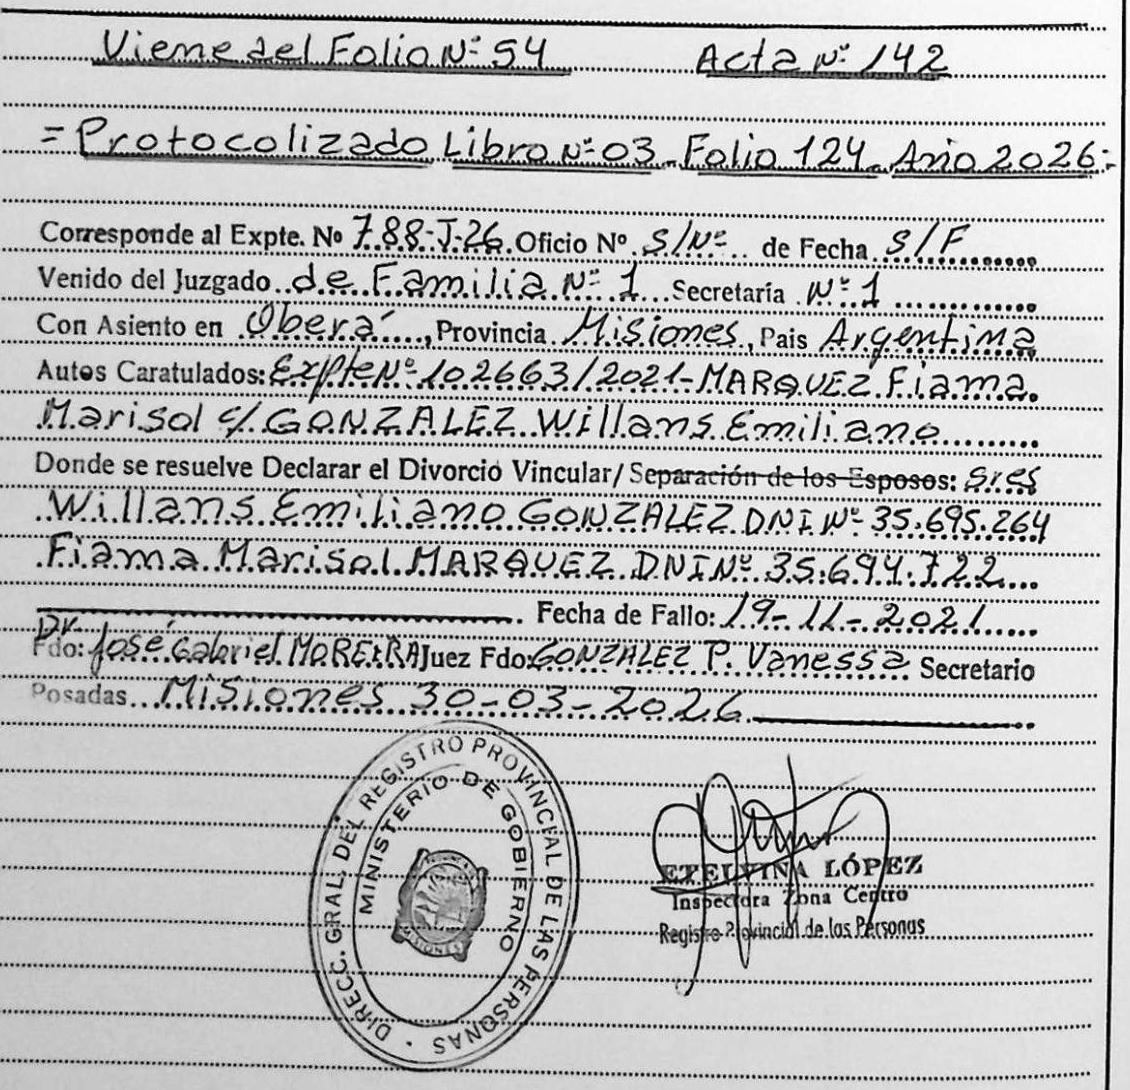 Viene del Folio Nº 54 Acta Nº 142
= Protocolizado Libro Nº 03 Folio 124 Año 2026=
Corresponde al Expte. Nº 788-J-26 Oficio Nº S/Nº de Fecha S/F
Venido del Juzgado de Familia Nº 1 Secretaría Nº 1
Con Asiento en Oberá, Provincia Misiones, Pais Argentina
Autos Caratulados: Expte Nº 102663/2021-MARQUEZ Fiama
Marisol c/ GONZALEZ Willans Emiliano
Donde se resuelve Declarar el Divorcio Vincular/ Separación de los Esposos: Sres
Willans Emiliano GONZALEZ DNI Nº 35.695.264
Fiama Marisol MARQUEZ DNI Nº 35.694.722
Fecha de Fallo: 19-11-2021
Fdo: Dr. José Gabriel MOREIRA Juez Fdo: GONZALEZ P. Vanessa Secretario
Posadas Misiones 30-03-2026
DIRECC. GRAL. DEL REGISTRO PROVINCIAL DE LAS PERSONAS
MINISTERIO DE GOBIERNO
MISIONES
ETELVINA LÓPEZ
Inspectora Zona Centro
Registro Provincial de las Personas